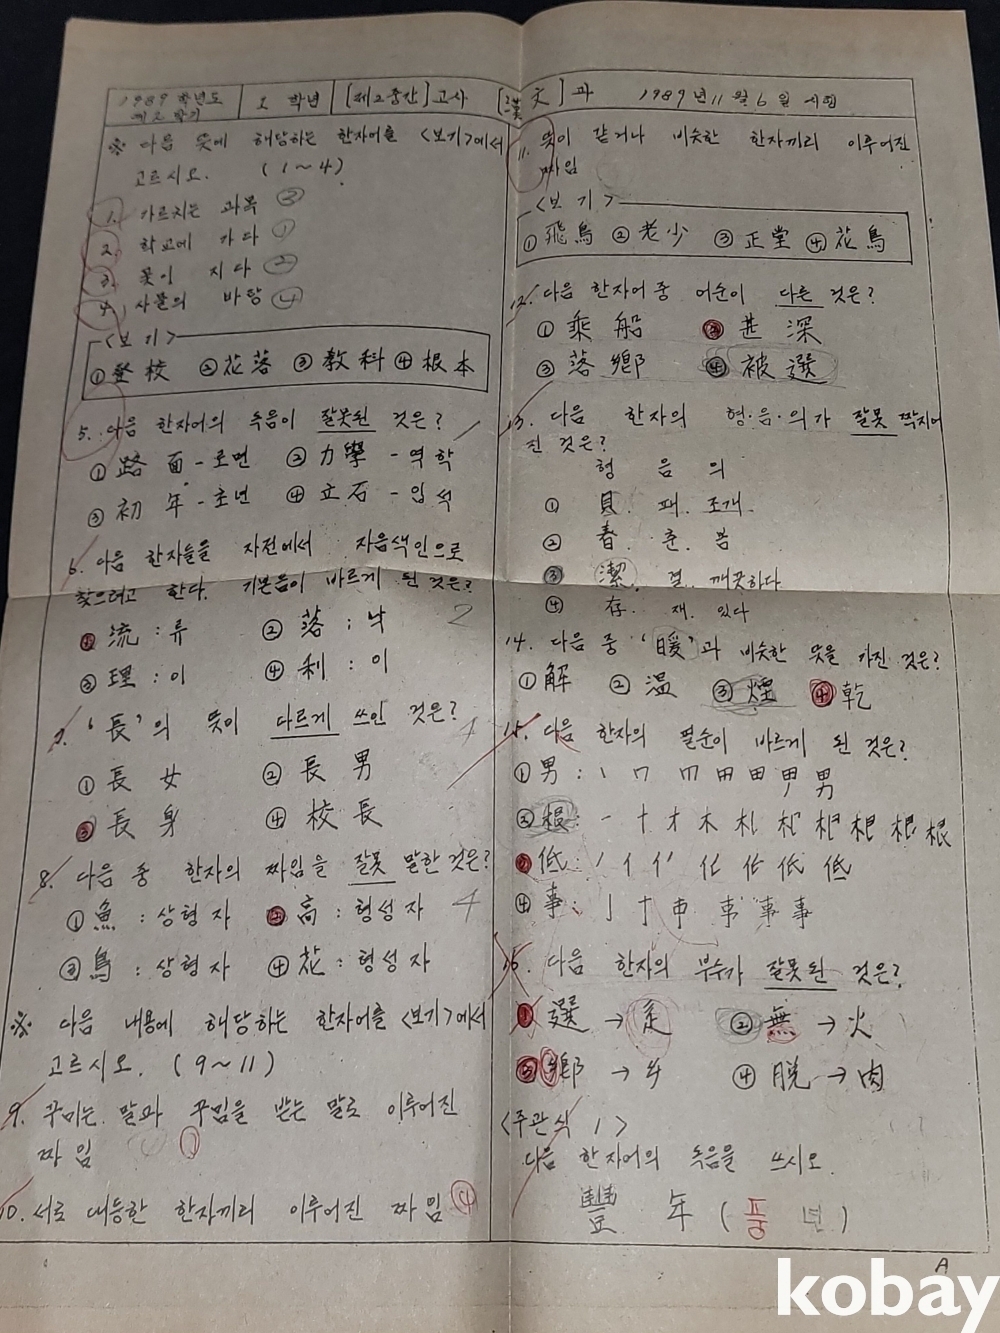 1989 학년도
제 2 학기
1 학년
[제2중간] 고사
[漢文] 과
1989년 11월 6일 시행
※ 다음 뜻에 해당하는 한자어를 <보기>에서
고르시오. (1~4)
1. 가르치는 과목 ③
2. 학교에 가다 ①
3. 꽃이 지다 ②
4. 사물의 바탕 ④
<보기>
① 登校 ② 花落 ③ 敎科 ④ 根本
5. 다음 한자어의 독음이 잘못된 것은?
① 路面 - 로면 ② 力學 - 역학
③ 初年 - 초년 ④ 立石 - 입석
6. 다음 한자들을 자전에서 자음색인으로
찾으려고 한다. 기본음이 바르게 된 것은?
① 流 : 류 ② 落 : 낙
③ 理 : 이 ④ 利 : 이
2
7. '長'의 뜻이 다르게 쓰인 것은?
① 長女 ② 長男
③ 長身 ④ 校長
4
8. 다음 중 한자의 짜임을 잘못 말한 것은?
① 魚 : 상형자 ② 高 : 형성자
③ 鳥 : 상형자 ④ 花 : 형성자
4
※ 다음 내용에 해당하는 한자어를 <보기>에서
고르시오. (9~11)
9. 꾸미는 말과 꾸밈을 받는 말로 이루어진
짜임 ①
10. 서로 대등한 한자끼리 이루어진 짜임 ④
11. 뜻이 같거나 비슷한 한자끼리 이루어진
짜임
<보기>
① 飛鳥 ② 老少 ③ 正堂 ④ 花鳥
12. 다음 한자어 중 어순이 다른 것은?
① 乘船 ② 甚深
③ 落鄕 ④ 被選
13. 다음 한자의 형·음·의가 잘못 짝지어
진 것은?
형 음 의
① 貝. 패. 조개.
② 春. 춘. 봄
③ 潔. 결. 깨끗하다.
④ 存. 재. 있다
14. 다음 중 '暖'과 비슷한 뜻을 가진 것은?
① 解 ② 溫 ③ 煙 ④ 乾
15. 다음 한자의 필순이 바르게 된 것은?
① 男 :
② 根 :
③ 低 :
④ 事 :
16. 다음 한자의 부수가 잘못된 것은?
① 選 → 辶 ② 無 → 火
③ 鄕 → 乡 ④ 脫 → 肉
<주관식 1>
다음 한자어의 독음을 쓰시오.
豐年 (풍년)
A
kobay